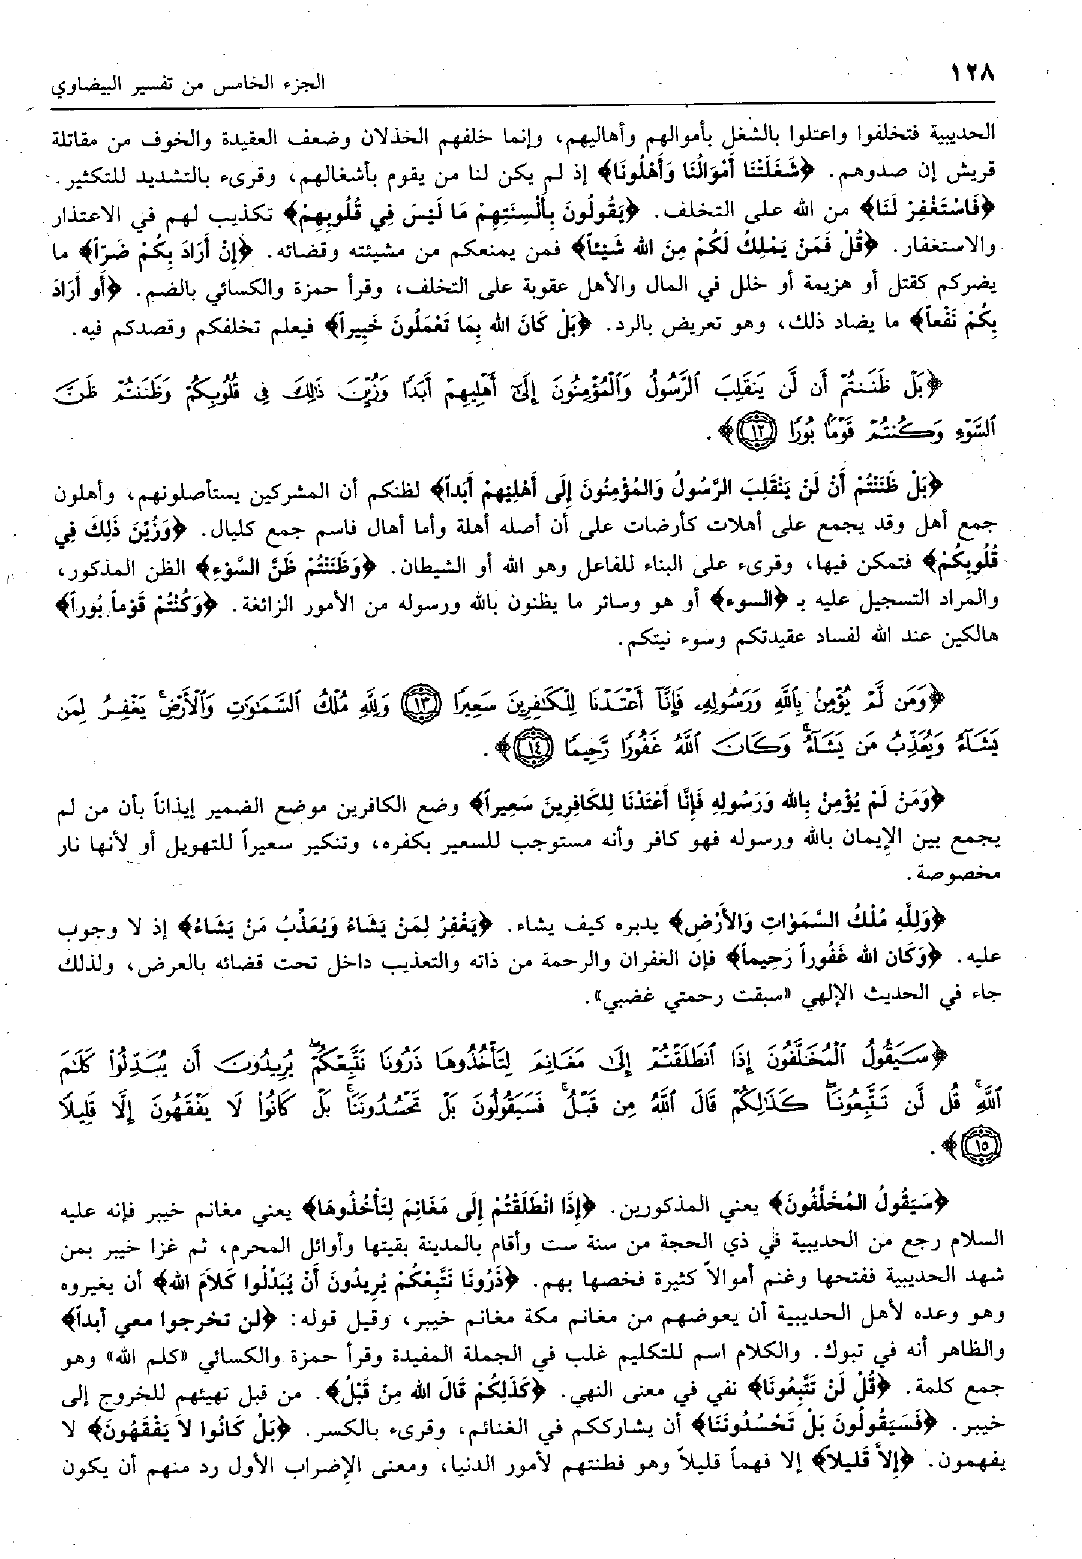 ١٢٨
الجزء الخامس من تفسير البيضاوي
الحديبية فتخلفوا واعتلوا بالشغل بأموالهم وأهاليهم، وإنما خلفهم الخذلان وضعف العقيدة والخوف من مقاتلة
قريش إن صدوهم. ﴿شَغَلَتْنَا أَمْوَالُنَا وَأَهْلُونَا﴾ إذ لم يكن لنا من يقوم بأشغالهم، وقرىء بالتشديد للتكثير.
﴿فَاسْتَغْفِرْ لَنَا﴾ من الله على التخلف. ﴿يَقُولُونَ بِأَلْسِنَتِهِمْ مَا لَيْسَ فِي قُلُوبِهِمْ﴾ تكذيب لهم في الاعتذار
والاستغفار. ﴿قُلْ فَمَنْ يَمْلِكُ لَكُمْ مِنَ الله شَيْئاً﴾ فمن يمنعكم من مشيئته وقضائه. ﴿إِنْ أَرَادَ بِكُمْ ضَرّاً﴾ ما
يضركم كقتل أو هزيمة أو خلل في المال والأهل عقوبة على التخلف، وقرأ حمزة والكسائي بالضم. ﴿أَو أَرَادَ
بِكُمْ نَفْعاً﴾ ما يضاد ذلك، وهو تعريض بالرد. ﴿بَلْ كَانَ الله بِمَا تَعْمَلُونَ خَبِيراً﴾ فيعلم تخلفكم وقصدكم فيه.
﴿بَلْ ظَنَنتُمْ أَن لَّن يَنقَلِبَ ٱلرَّسُولُ وَٱلْمُؤْمِنُونَ إِلَىٰٓ أَهْلِيهِمْ أَبَدًا وَزُيِّنَ ذَٰلِكَ فِى قُلُوبِكُمْ وَظَنَنتُمْ ظَنَّ
ٱلسَّوْءِ وَكُنتُمْ قَوْمًۢا بُورًا ١٢﴾.
﴿بَلْ ظَنَنْتُمْ أَنْ لَنْ يَنْقَلِبَ الرَّسُولُ وَالمُؤْمِنُونَ إِلَى أَهْلِيْهِمْ أَبَداً﴾ لظنكم أن المشركين يستأصلونهم، وأهلون
جمع أهل وقد يجمع على أهلات كأرضات على أن أصله أهلة وأما أهال فاسم جمع كليال. ﴿وَزُيِّنَ ذَلِكَ فِي
قُلُوبِكُمْ﴾ فتمكن فيها، وقرىء على البناء للفاعل وهو الله أو الشيطان. ﴿وَظَنَنْتُمْ ظَنَّ السَّوْءِ﴾ الظن المذكور،
والمراد التسجيل عليه بـ ﴿السوء﴾ أو هو وسائر ما يظنون بالله ورسوله من الأمور الزائغة. ﴿وَكُنْتُمْ قَوْماً بُوراً﴾
هالكين عند الله لفساد عقيدتكم وسوء نيتكم.
﴿وَمَن لَّمْ يُؤْمِنۢ بِٱللَّهِ وَرَسُولِهِۦ فَإِنَّآ أَعْتَدْنَا لِلْكَٰفِرِينَ سَعِيرًا ١٣ وَلِلَّهِ مُلْكُ ٱلسَّمَٰوَٰتِ وَٱلْأَرْضِ ۚ يَغْفِرُ لِمَن
يَشَآءُ وَيُعَذِّبُ مَن يَشَآءُ ۚ وَكَانَ ٱللَّهُ غَفُورًا رَّحِيمًا ١٤﴾.
﴿وَمَنْ لَمْ يُؤْمِنْ بِالله وَرَسُولِهِ فَإِنَّا أَعْتَدْنَا لِلكَافِرِينَ سَعِيراً﴾ وضع الكافرين موضع الضمير إيذاناً بأن من لم
يجمع بين الإيمان بالله ورسوله فهو كافر وأنه مستوجب للسعير بكفره، وتنكير سعيراً للتهويل أو لأنها نار
مخصوصة.
﴿وَلِلَّهِ مُلْكُ السَّمَوَاتِ وَالأَرْضِ﴾ يدبره كيف يشاء. ﴿يَغْفِرُ لِمَنْ يَشَاءُ وَيُعَذِّبُ مَنْ يَشَاءُ﴾ إذ لا وجوب
عليه. ﴿وَكَان الله غَفُوراً رَحِيماً﴾ فإن الغفران والرحمة من ذاته والتعذيب داخل تحت قضائه بالعرض، ولذلك
جاء في الحديث الإلهي «سبقت رحمتي غضبي».
﴿سَيَقُولُ ٱلْمُخَلَّفُونَ إِذَا ٱنطَلَقْتُمْ إِلَىٰ مَغَانِمَ لِتَأْخُذُوهَا ذَرُونَا نَتَّبِعْكُمْ ۖ يُرِيدُونَ أَن يُبَدِّلُوا۟ كَلَٰمَ
ٱللَّهِ ۚ قُل لَّن تَتَّبِعُونَا كَذَٰلِكُمْ قَالَ ٱللَّهُ مِن قَبْلُ ۖ فَسَيَقُولُونَ بَلْ تَحْسُدُونَنَا ۚ بَلْ كَانُوا۟ لَا يَفْقَهُونَ إِلَّا قَلِيلًا
١٥﴾.
﴿سَيَقُولُ المُخَلَّفُونَ﴾ يعني المذكورين. ﴿إِذَا انْطَلَقْتُمْ إِلَى مَغَانِمَ لِتَأْخُذُوهَا﴾ يعني مغانم خيبر فإنه عليه
السلام رجع من الحديبية في ذي الحجة من سنة ست وأقام بالمدينة بقيتها وأوائل المحرم، ثم غزا خيبر بمن
شهد الحديبية ففتحها وغنم أموالاً كثيرة فخصها بهم. ﴿ذَرُونَا نَتَّبِعْكُمْ يُرِيدُونَ أَنْ يُبَدِّلُوا كَلاَمَ الله﴾ أن يغيروه
وهو وعده لأهل الحديبية أن يعوضهم من مغانم مكة مغانم خيبر، وقيل قوله: ﴿لن تخرجوا معي أبداً﴾
والظاهر أنه في تبوك. والكلام اسم للتكليم غلب في الجملة المفيدة وقرأ حمزة والكسائي «كلم الله» وهو
جمع كلمة. ﴿قُلْ لَنْ تَتَّبِعُونَا﴾ نفي في معنى النهي. ﴿كَذَلِكُمْ قَالَ الله مِنْ قَبْلُ﴾. من قبل تهيئهم للخروج إلى
خيبر. ﴿فَسَيَقُولُونَ بَلْ تَحْسُدُونَنَا﴾ أن يشارككم في الغنائم، وقرىء بالكسر. ﴿بَلْ كَانُوا لاَ يَفْقَهُونَ﴾ لا
يفهمون. ﴿إِلاَّ قَلِيلاً﴾ إلا فهماً قليلاً وهو فطنتهم لأمور الدنيا، ومعنى الإضراب الأول رد منهم أن يكون